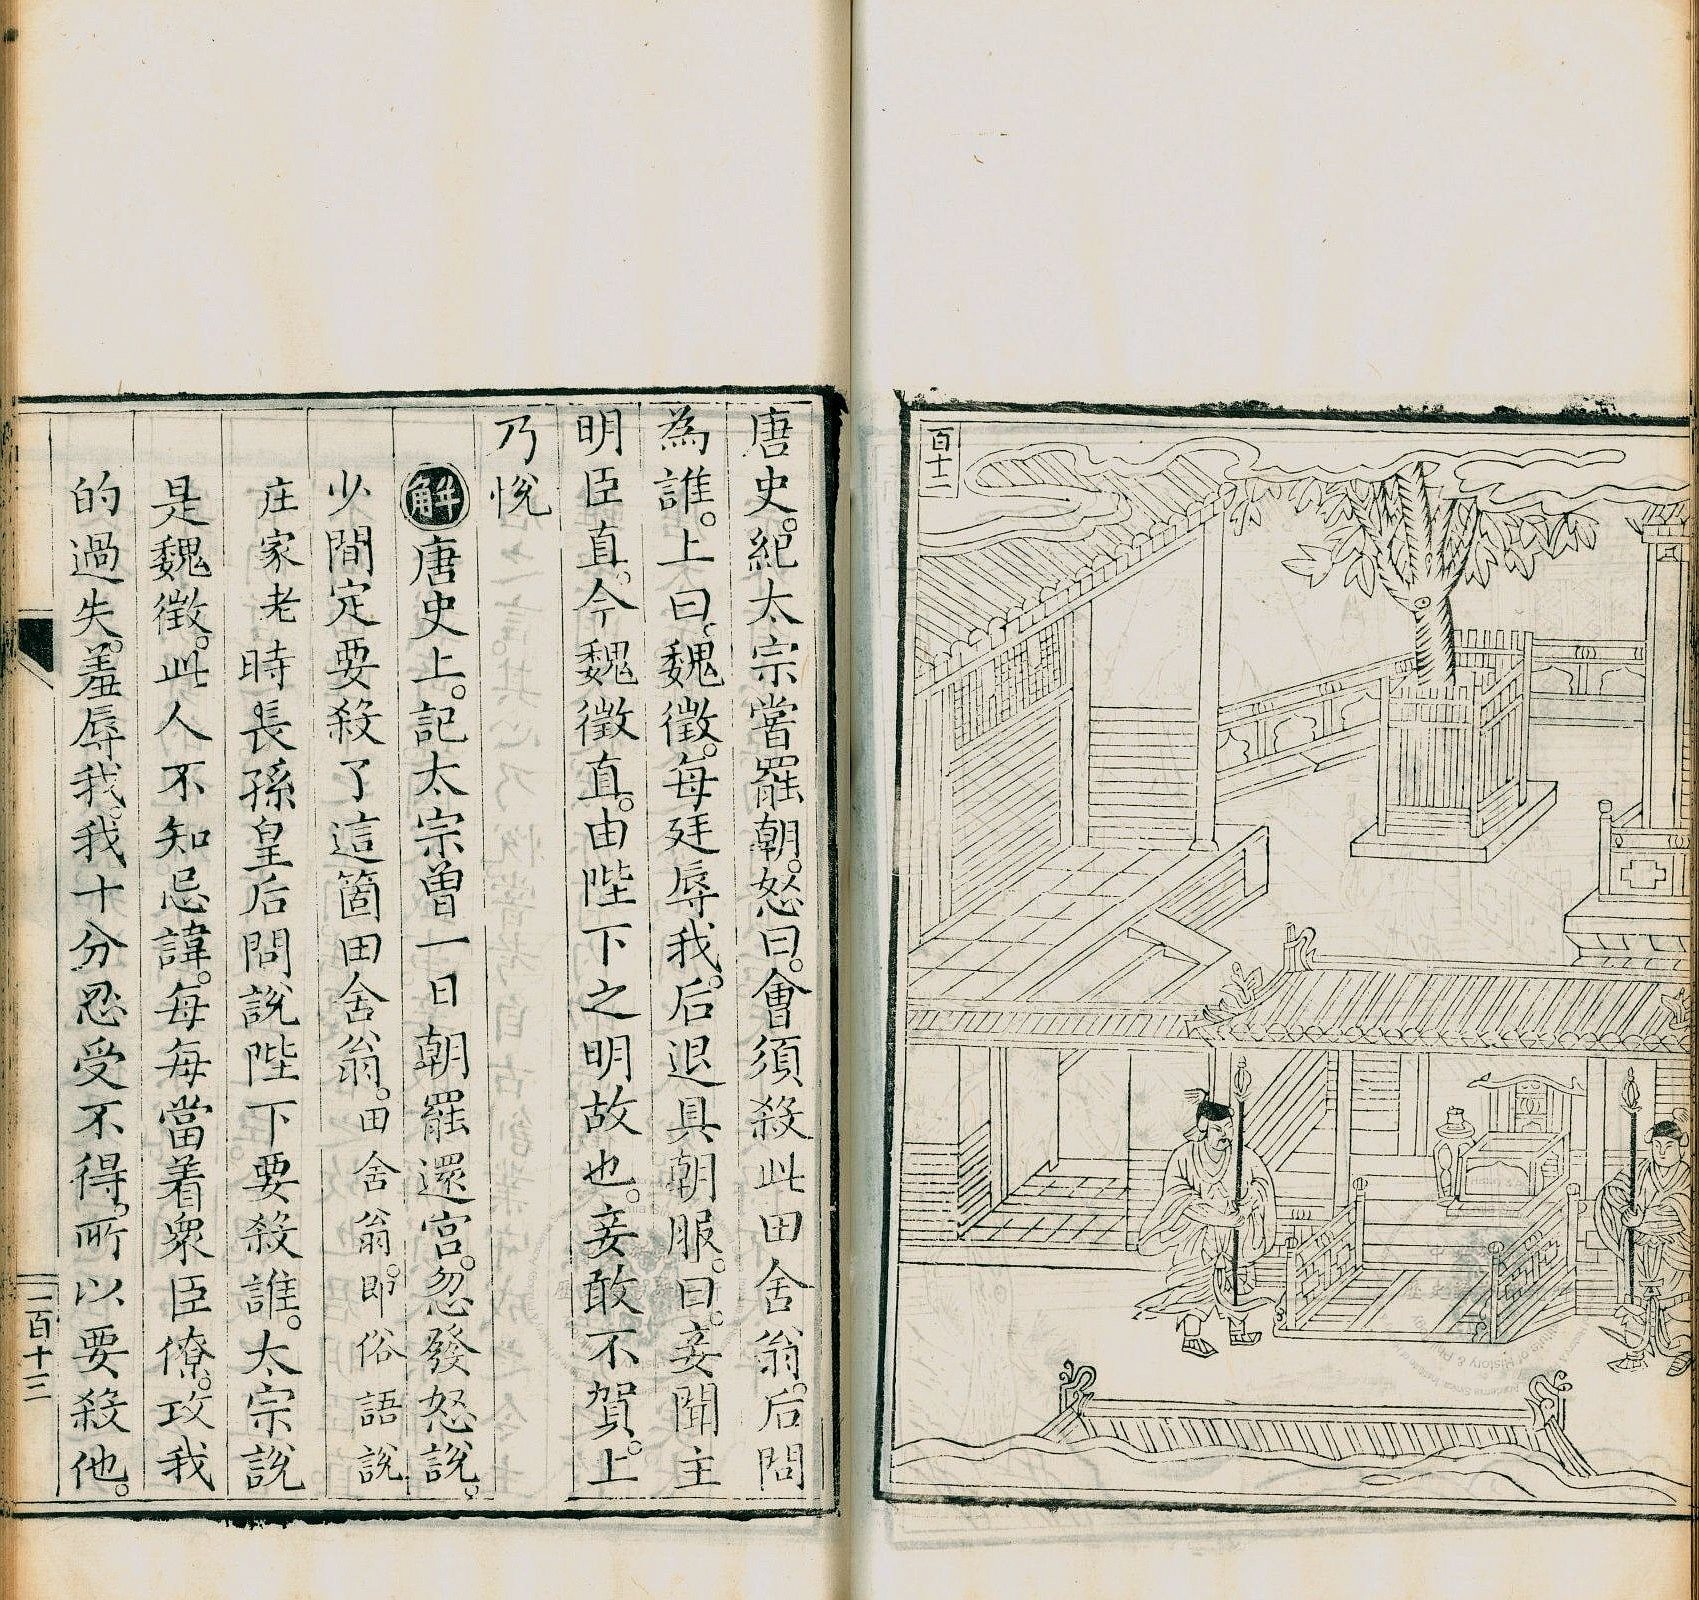 百十二
唐史。紀太宗嘗罷朝。怒曰。會須殺此田舍翁。后問
為誰。上曰。魏徵。每廷辱我。后退具朝服。曰。妾聞主
明臣直。今魏徵直。由陛下之明故也。妾敢不賀。上
乃悅
解唐史上。記太宗曾一日朝罷還宮。忽發怒說。
少間定要殺了這箇田舍翁。田舍翁。即俗語說
庄家老時長孫皇后問說陛下要殺誰。太宗說
是魏徵。此人不知忌諱。每每當着衆臣僚。攻我
的過失。羞辱我。我十分忍受不得。所以要殺他。
一百十三